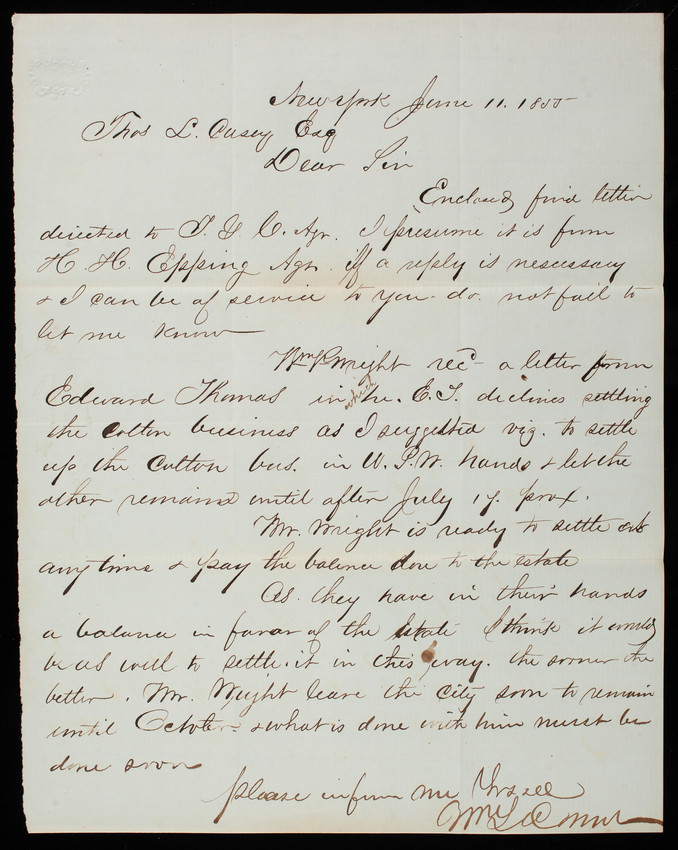 New York June 11. 1855
Thos L. Casey Esq
Dear Sir
Enclosed find letter
directed to T. & C. Agr. I presume it is from
H. H. Epping Agr. if a reply is nesessary
& I can be of service to you. do. not fail to
let me know
Wm P Wright recd a letter from
Edward Thomas in which the. E. T. declines settling
the cotton business as I suggested viz. to settle
up the Cotton bus. in W. P. W. hands & let the
other remaind until after July 17. prox.
Mr. Wright is ready to settle at
any time & pay the balance due to the estate
As. they have in their hands
a balance in favor of the Estate I think it would
be as well to settle it in this way. the sooner the
better. Mr. Wright leave the City soon to remain
until October. & what is done with him must be
done soon
please inform me Yrs
Wm